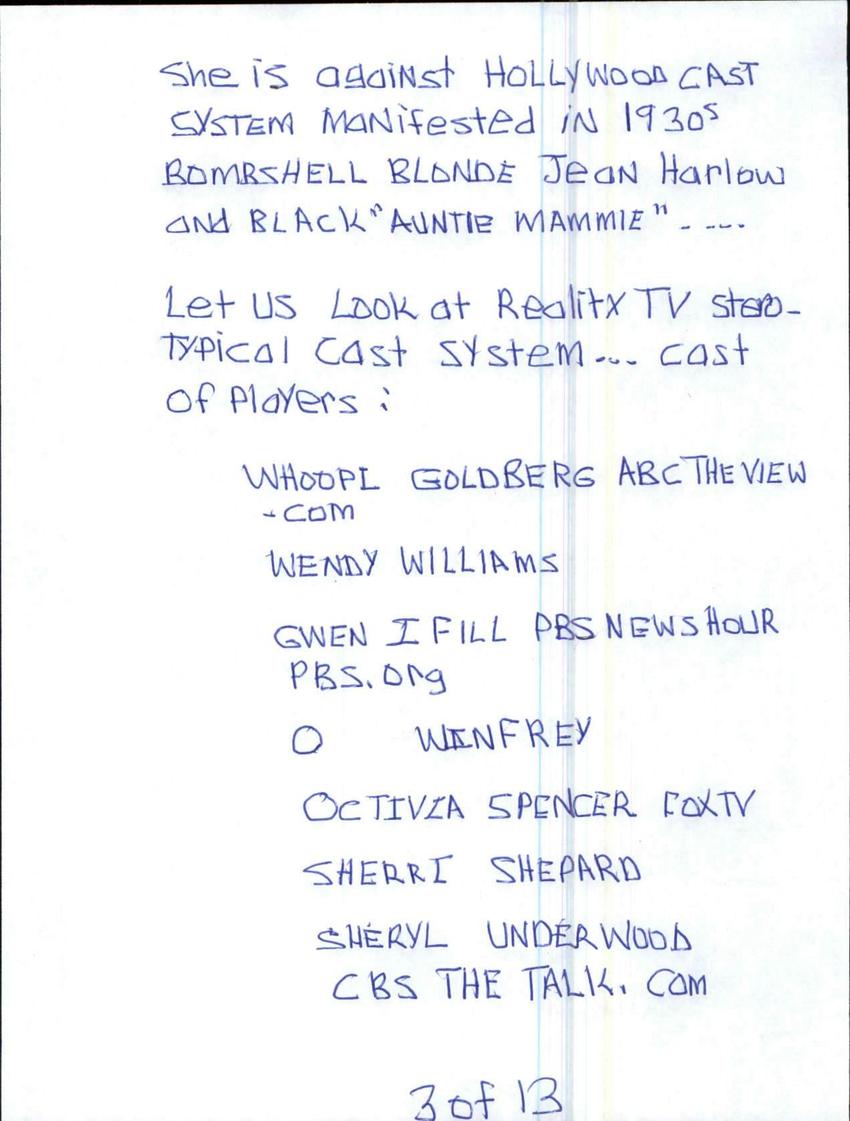 She is against HOLLYWOOD CAST
SYSTEM MaNifested iN 1930s
BOMBSHELL BLONDE Jean Harlow
and BLACK "AUNTIE MAMMIE" - ---.
Let us Look at Reality TV stero-
Typical Cast system... cast
of Players :
WHOOPI GOLDBERG ABCTHEVIEW
-COM
WENDY WILLIAMS
GWEN IFILL PBS NEWSHOUR
PBS.org
O WINFREY
OCTIVIA SPENCER FOXTV
SHERRI SHEPARD
SHERYL UNDERWOOD
CBS THE TALK. COM
3 of 13